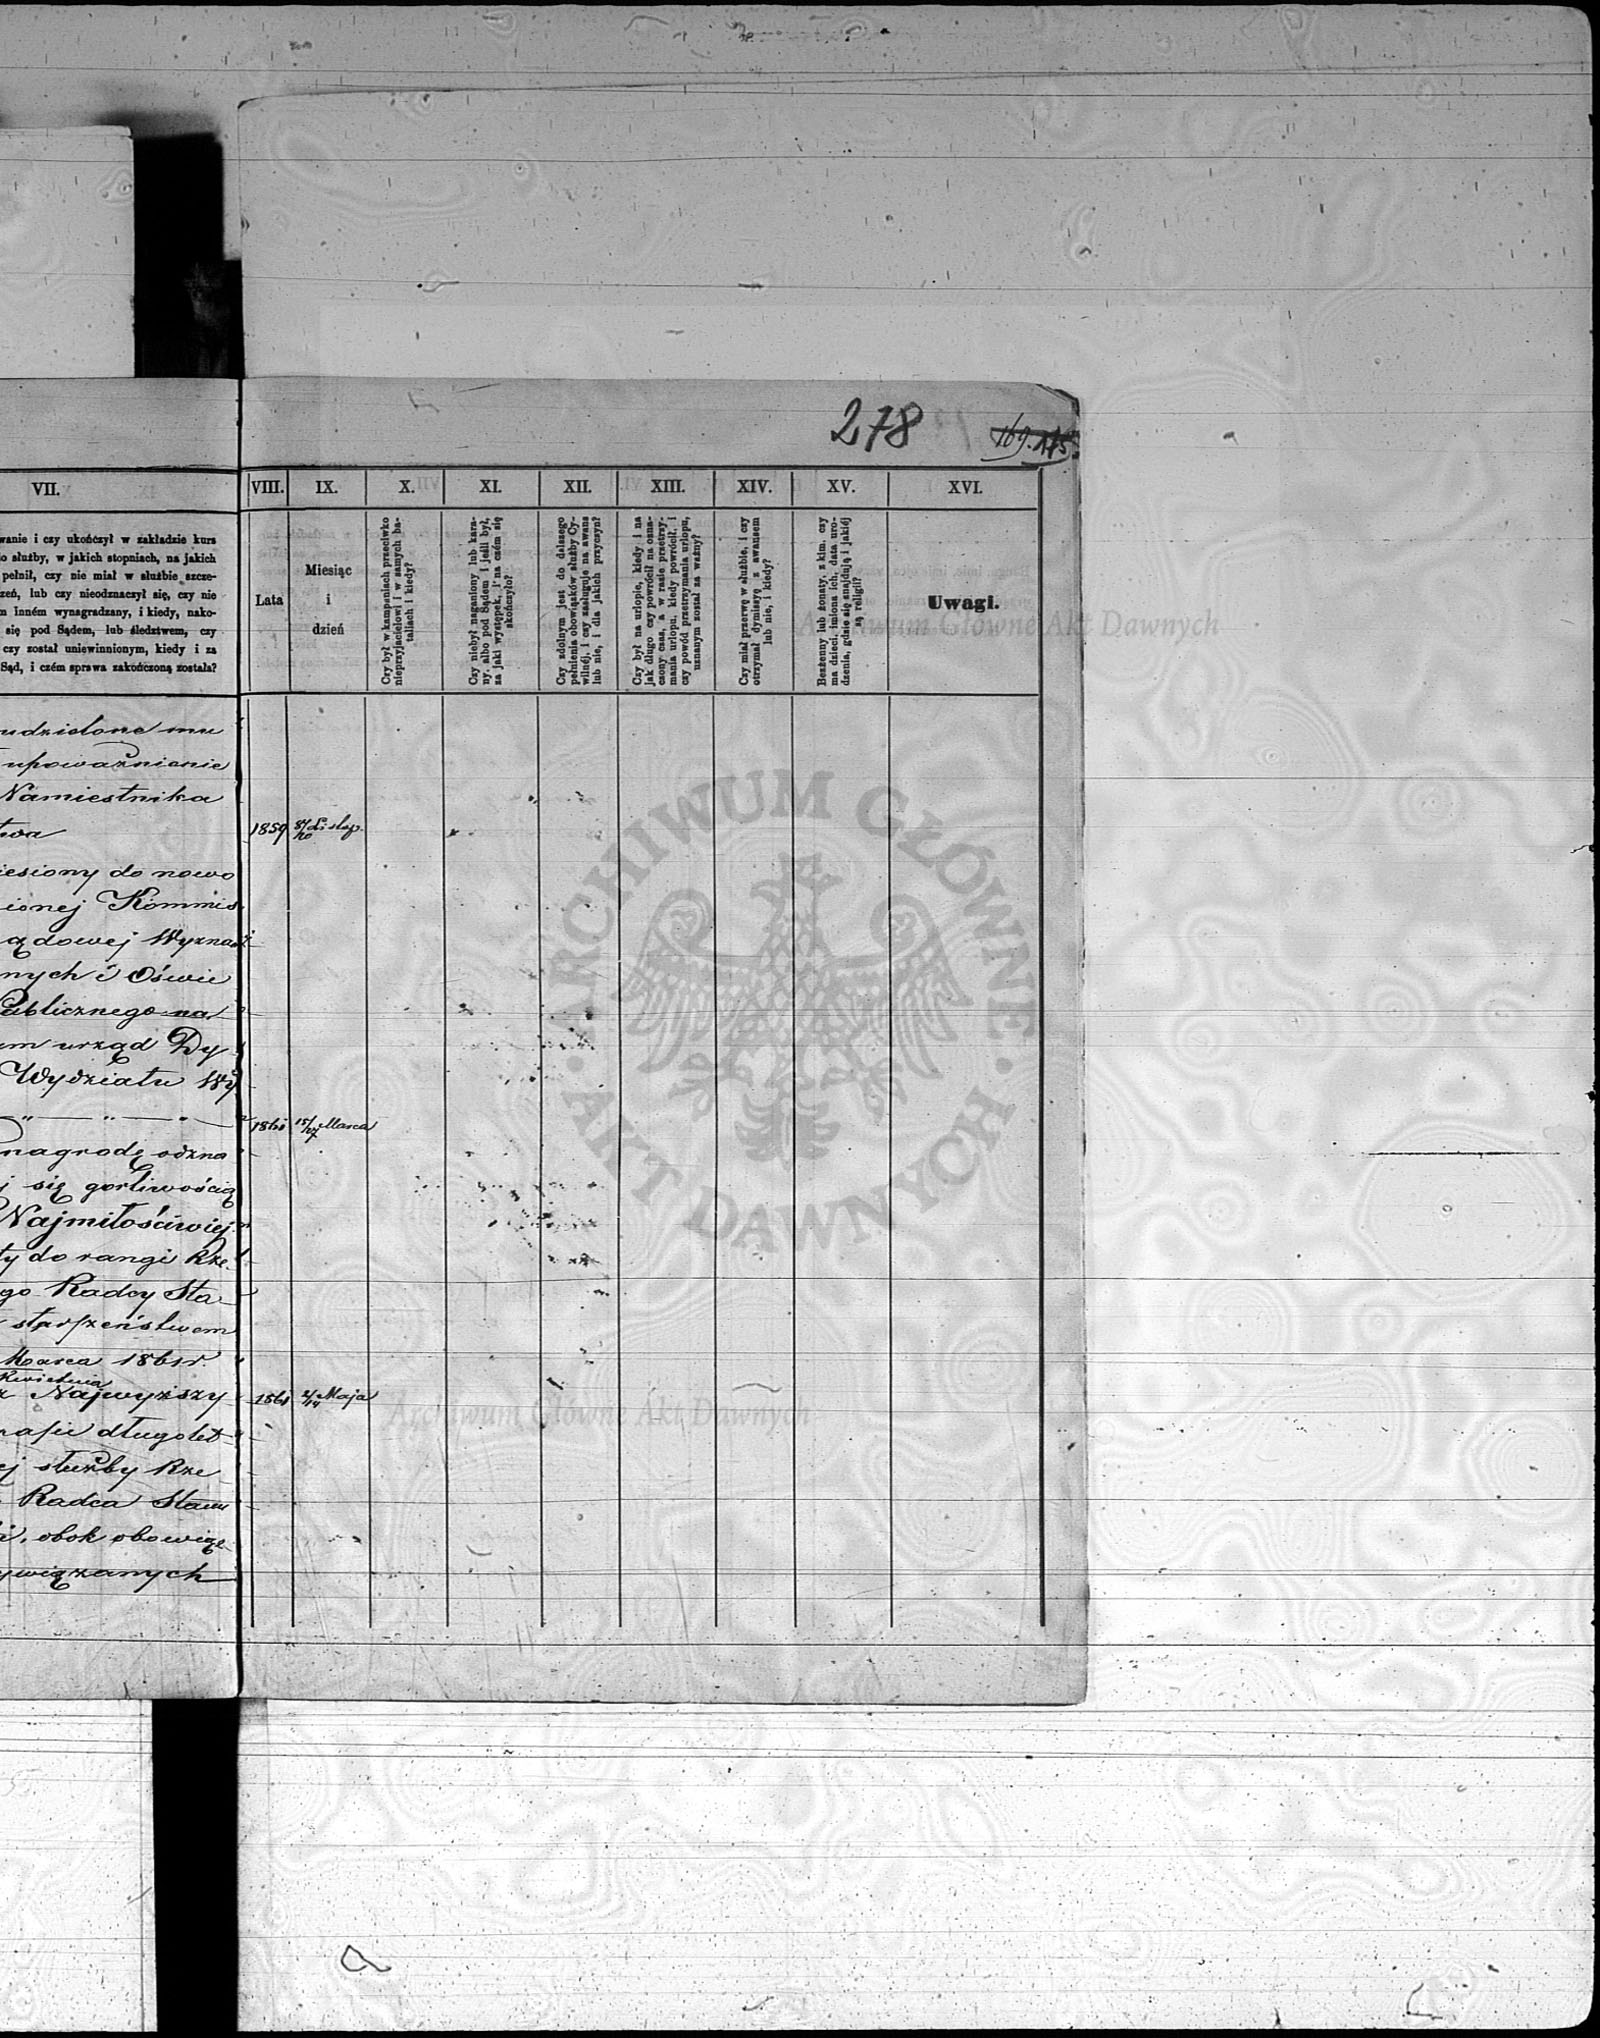 278
169. 175
VII.
wanie i czy ukończył w zakładzie kurs
o służby, w jakich stopniach, na jakich
pełnił, czy nie miał w służbie szcze-
zeń, lub czy nieodznaczył się, czy nie
m inném wynagradzany, i kiedy, nako-
się pod Sądem, lub śledztwem, czy
czy został uniewinnionym, kiedy i za
Sąd, i czém sprawa zakończoną została?
VIII.
Lata
IX.
Miesiąc
i
dzień
X.
Czy był w kampaniach przeciwko
nieprzyjacielowi i w samych ba-
taliach i kiedy?
XI.
Czy niebył naganiony lub kara-
ny, albo pod Sądem i jeśli był,
za jaki występek, i na czém się
skończyło?
XII.
Czy zdolnym jest do dalszego
pełnienia obowiązków służby Cy-
wilnéj, i czy zasługuje na awans
lub nie, i dla jakich przyczyn?
XIII.
Czy był na urlopie, kiedy i na
jak długo czy powrócił na ozna-
czony czas, a w razie przetrzy-
mania urlopu, kiedy powrócił, i
czy powód przetrzymania urlopu,
uznanym został za ważny?
XIV.
Czy miał przerwę w służbie, i czy
otrzymał dymissyę z awansem
lub nie, i kiedy?
XV.
Bezżenny lub żonaty, z kim, czy
ma dzieci, imiona ich, data uro-
dzenia, gdzie się znajdują i jakiéj
są religii?
XVI.
Uwagi.
udzielone mu
upoważnienie
Namiestnika
twa 1859 8/20 Listop.
iesiony do nowo
ionej Kommis
ądowej Wyznań
nych i Oświe
Publicznego na
em urząd Dy
Wydziału Wy
" " " 1861 15/27 Marca
nagrodę odzna
j się gorliwością
Najmiłościwiej
ty do rangi Rze
go Radcy Sta
starszeństwem
Marca 1861 r.
Kwietnia
z Najwyższy 1861 2/14 Maja
rasie długolet
ej służby Rze
Radca Stanu
i, obok obowiąz
ywiązanych
Archiwum Główne Akt Dawnych
ARCHIWUM GŁÓWNE · AKT DAWNYCH ·
Archiwum Główne Akt Dawnych